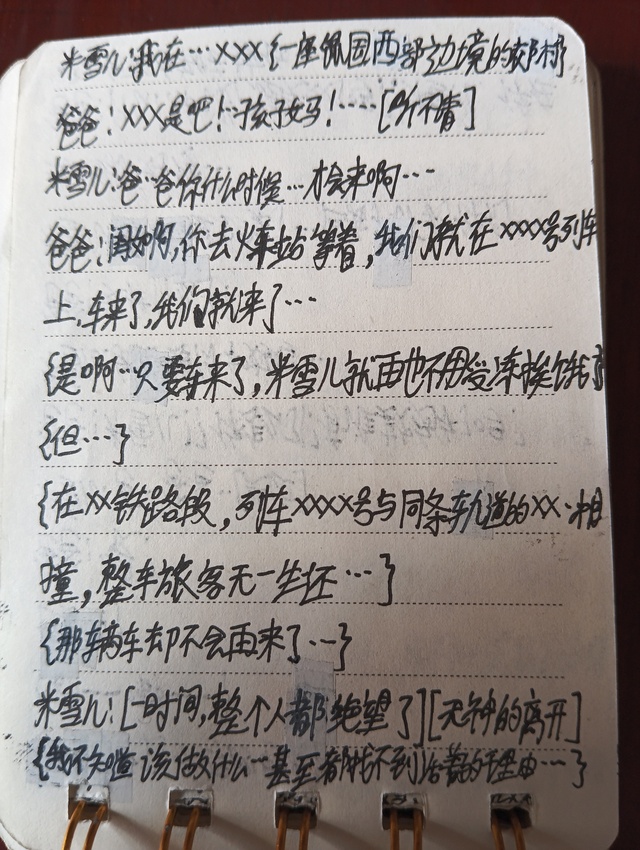 米雪儿:我在…XXX{一座佩国西部边境的乡村
爸爸:XXX是吧!孩子妈!…[听不清]
米雪儿:爸…爸你什么时候…才会来啊…
爸爸:闺女啊,你去火车站等着,我们就在XXXX号列车
上,车来了,我们就来了…
{是啊…只要车来了,米雪儿就再也不用受冻挨饿了
{但…}
{在XX铁路段,列车XXXX号与同条轨道的XX·相
撞,整车旅客无一生还…}
{那辆车却不会再来了…}
米雪儿:[一时间,整个人都绝望了][无神的离开]
{我不知道该做什么…甚至都找不到活着的理由…}